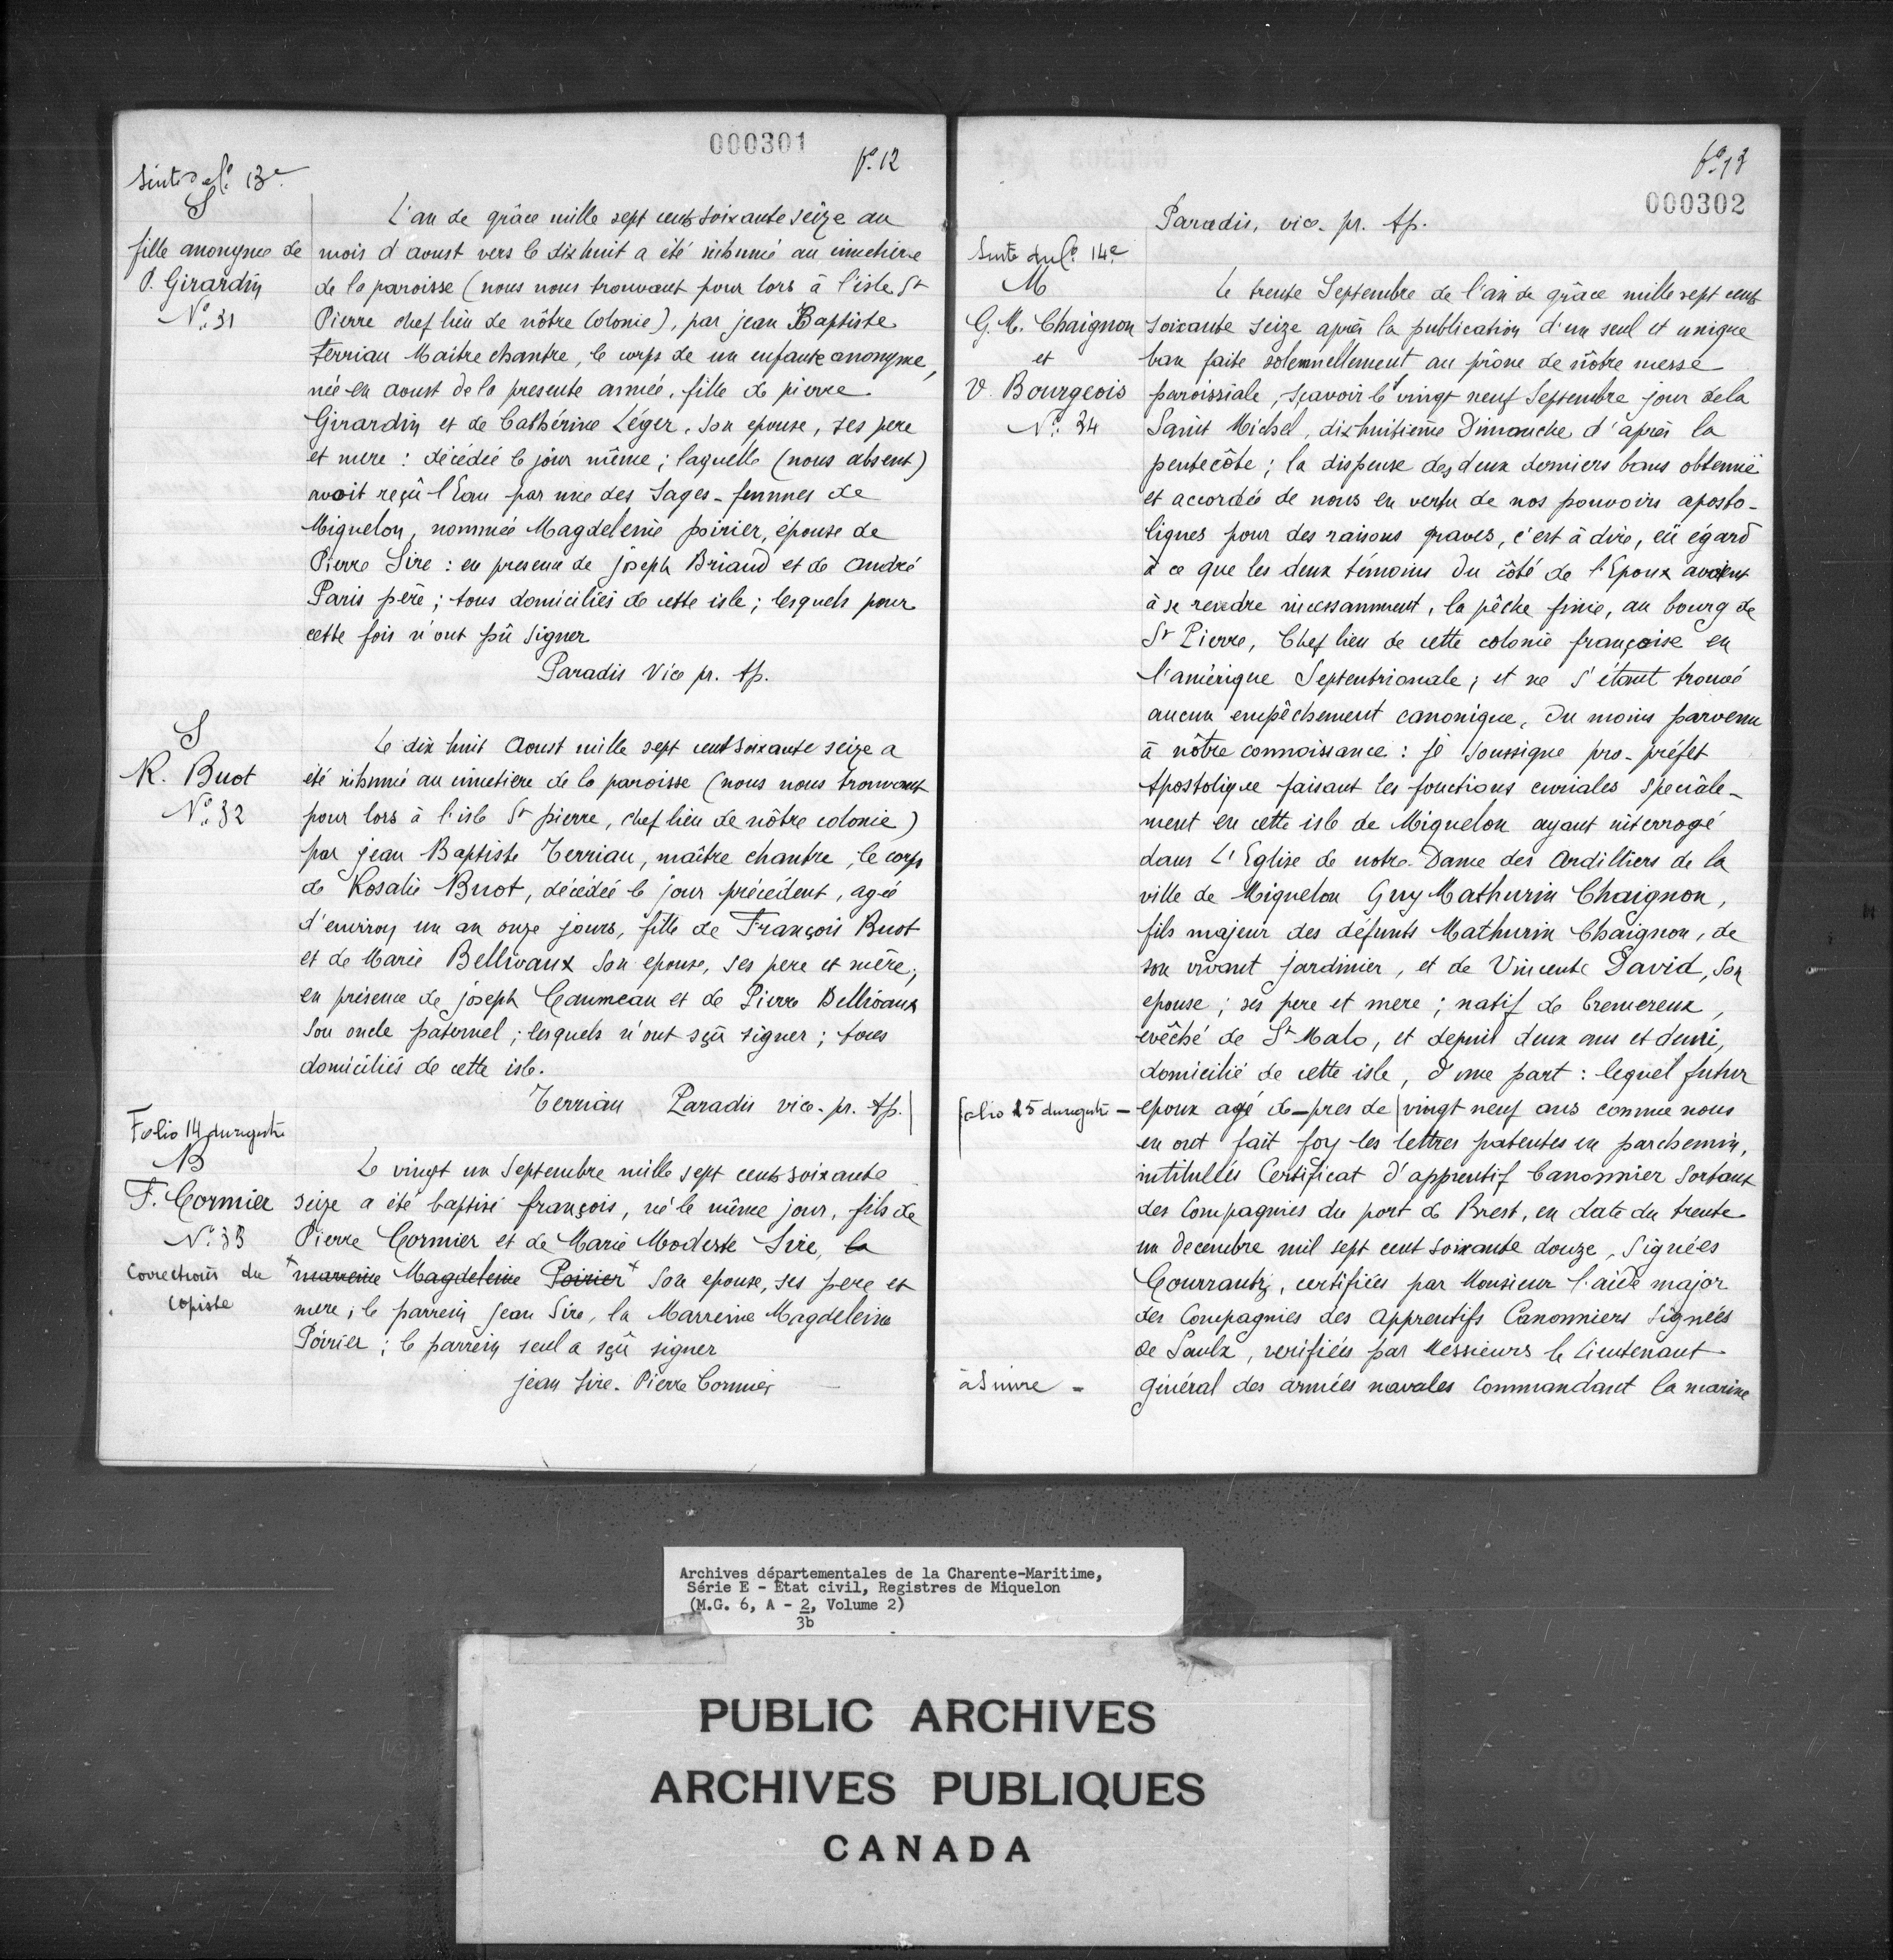 000301
fo. 12
Suite du fo. 13e
S
fille anonyme de
P. Girardin
No. 31
L'an de grâce mille sept cents soixante seize au
mois d'aoust vers le dix huit a été inhumé au cimetière
de la paroisse (nous nous trouvant pour lors à l'isle St
Pierre chef lieu de nôtre Colonie), par jean Baptiste
terriau Maitre chantre, le corps de un enfante anonyme,
née en aoust de la presente année, fille de pierre
Girardin et de Cathérine Léger, son epouse, ses pere
et mere : décédée le jour même ; laquelle (nous absent)
avoit reçû l'Eau par une des sages-femmes de
Miquelon, nommée Magdeleine poirier, épouse de
Pierre Sire : en presence de joseph Briand et de andré
Paris père ; tous domiciliés de cette isle ; lesquels pour
cette fois n'ont pû signer
Paradis Vice pr. Ap.
S
R. Buot
No. 32
Le dix huit Aoust mille sept cent soixante seize a
été inhumé au cimetiere de la paroisse (nous nous trouvant
pour lors à l'isle St pierre, chef lieu de nôtre colonie)
par jean Baptiste Terriau, maître chantre, le corps
de Rosalie Buot, décédée le jour précédent, agée
d'environ un an onze jours, fille de François Buot
et de Marie Bellivaux son epouse, ses pere et mère ;
en présence de joseph Caumeau et de Pierre Bellivaux
son oncle paternel ; lesquels n'ont sçû signer ; tous
domiciliés de cette isle.
Terriau Paradis vice. pr. Ap.
Folio 14 du registre
B
F. Cormier
No. 33
Corrections du
copiste
Le vingt un Septembre mille sept cents soixante
seize a été baptisé françois, né le même jour, fils de
Pierre Cormier et de Marie Modeste Sire, la
mareine Magdeleine Poirier son epouse, ses pere et
mere ; le parrein Jean Sire, la Marreine Magdeleine
Poirier ; le parrein seul a sçû signer
jean Sire. Pierre Cormier
fo. 13
000302
Paradis, vice. pr. Ap.
Suite du fo. 14e
M
G. M. Chaignon
et
V. Bourgeois
No. 34
Le trente Septembre de l'an de grâce mille sept cents
soixante seize après la publication d'un seul et unique
ban faite solemnellement au prône de nôtre messe
paroissiale, sçavoir le vingt neuf Septembre jour de la
Saint Michel, dixhuitième Dimanche d'après la
pentecôte ; la dispense des deux derniers bans obtenue
et accordée de nous en vertu de nos pouvoirs aposto-
liques pour des raisons graves, c'est à dire, eü égard
à ce que les deux témoins du côté de l'Epoux avoient
à se rendre incessamment, la pêche finie, au bourg de
St Pierre, Chef lieu de cette colonie françoise en
l'amérique Septentrionale ; et ne s'étant trouvé
aucun empêchement canonique, du moins parvenu
à nôtre connoissance : je soussigne pro-préfet
Apostolique faisant les fonctions curiales speciâle-
ment en cette isle de Miquelon ayant interrogé
dans L'Eglise de notre Dame des Ardilliers de la
ville de Miquelon Guy Mathurin Chaignon,
fils majeur des défunts Mathurin Chaignon, de
son vivant jardinier, et de Vincente David, son
epouse ; ses pere et mere ; natif de Cremereux,
evêché de St Malo, et depuis deux ans et demi,
domicilié de cette isle, d'une part : lequel futur
folio 15 du registre - epoux agé de-pres de | vingt neuf ans comme nous
en ont fait foy les lettres patentes en parchemin,
intitulées Certificat d'apprentif Canonnier sortant
des Compagnies du port de Brest, en date du trente
un decembre mil sept cent soixante douze, signées
Courrantz, certifiées par Monsieur l'aide major
des Compagnies des Apprentifs Canonniers signées
de Saulx, verifiées par Messieurs le lieutenant
à Suivre - général des armées navales Commandant la marine
Archives départementales de la Charente-Maritime,
Série E - Etat civil, Registres de Miquelon
(M.G. 6, A - 2, Volume 2)
3b
PUBLIC ARCHIVES
ARCHIVES PUBLIQUES
CANADA